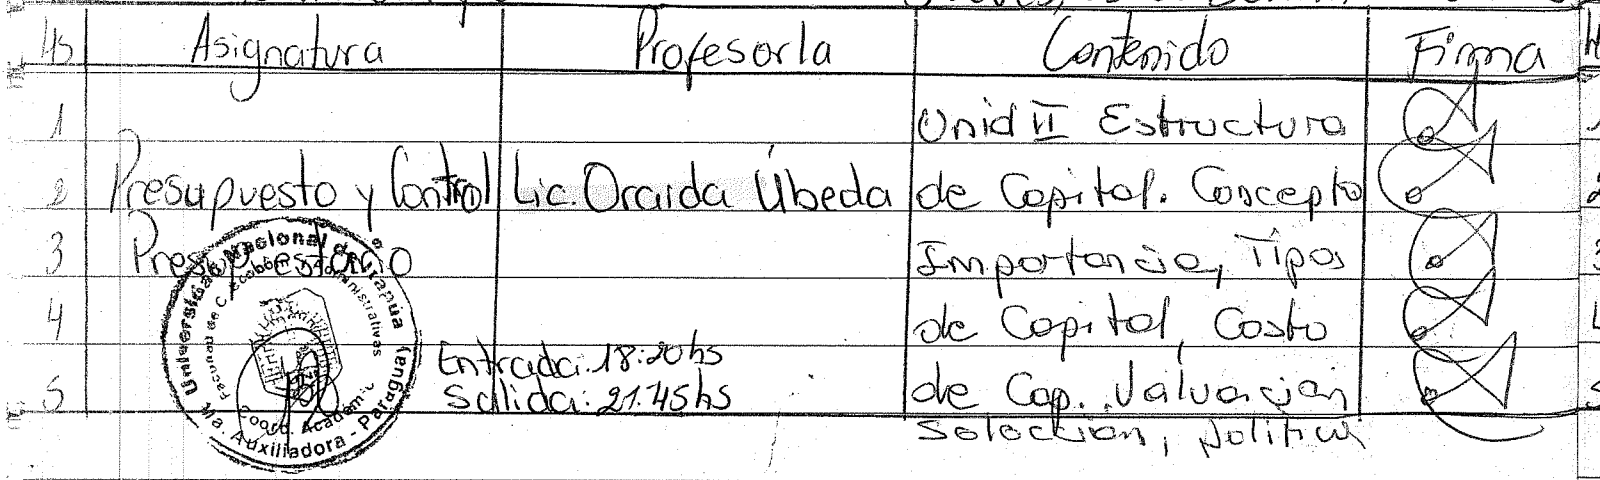 Hs Asignatura Profesor/a Contenido Firma
1 Unid II Estructura
2 Presupuesto y Control Lic. Oraida Úbeda de Capital. Concepto
3 Presupuestario Importancia, Tipos
4 de Capital, Costo
Entrada: 18:20hs
5 Salida: 21:45hs de Cap. Valuación
Selección, política
Universidad Nacional de Itapúa
Facultad de C. Económ. y Administrativas
Coord. Académic
Ma. Auxiliadora - Paraguay